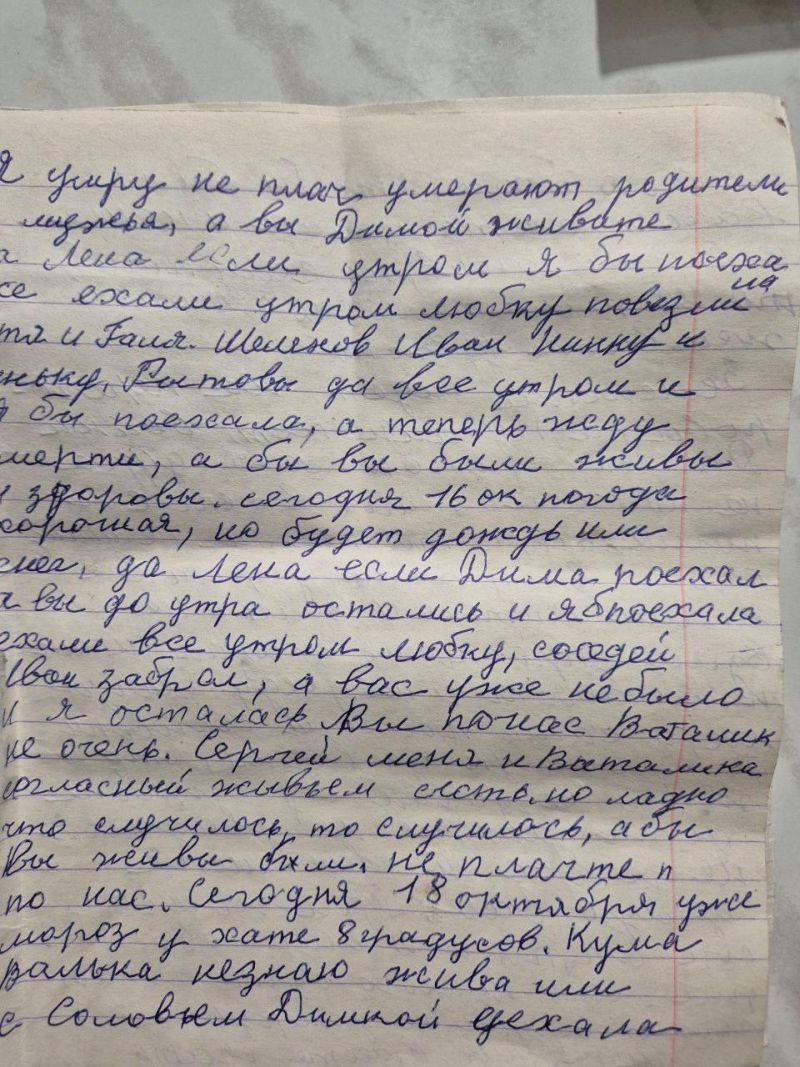 я умру не плач умерают родители
а вы Димой живите
а Лена если утром я бы поеха
се ехали утром любку повезли на
тя и Галя. Шеленов Иван Нинку и
ньку, Рытовы да все утром и
я бы поехала, а теперь жду
мерти, а бы вы были живы
и здоровы. сегодня 16 ок погода
хорошая, но будет дождь или
снег, да Лена если Дима поехал
а вы до утра остались и я бпоехала
ехали все утром любку, соседей
Иван забрал, а вас уже небыло
и я осталась Вы по нас Ваталик
не очень. Сергей меня и Виталика
огласный живьем сьесть, но ладно
что случилось, то случилось, абы
Вы живы были. не плачте п
по нас. Сегодня 18 октября уже
мороз у хате 8 градусов. Кума
валька незнаю жива или
с Соловьем Димкой уехала